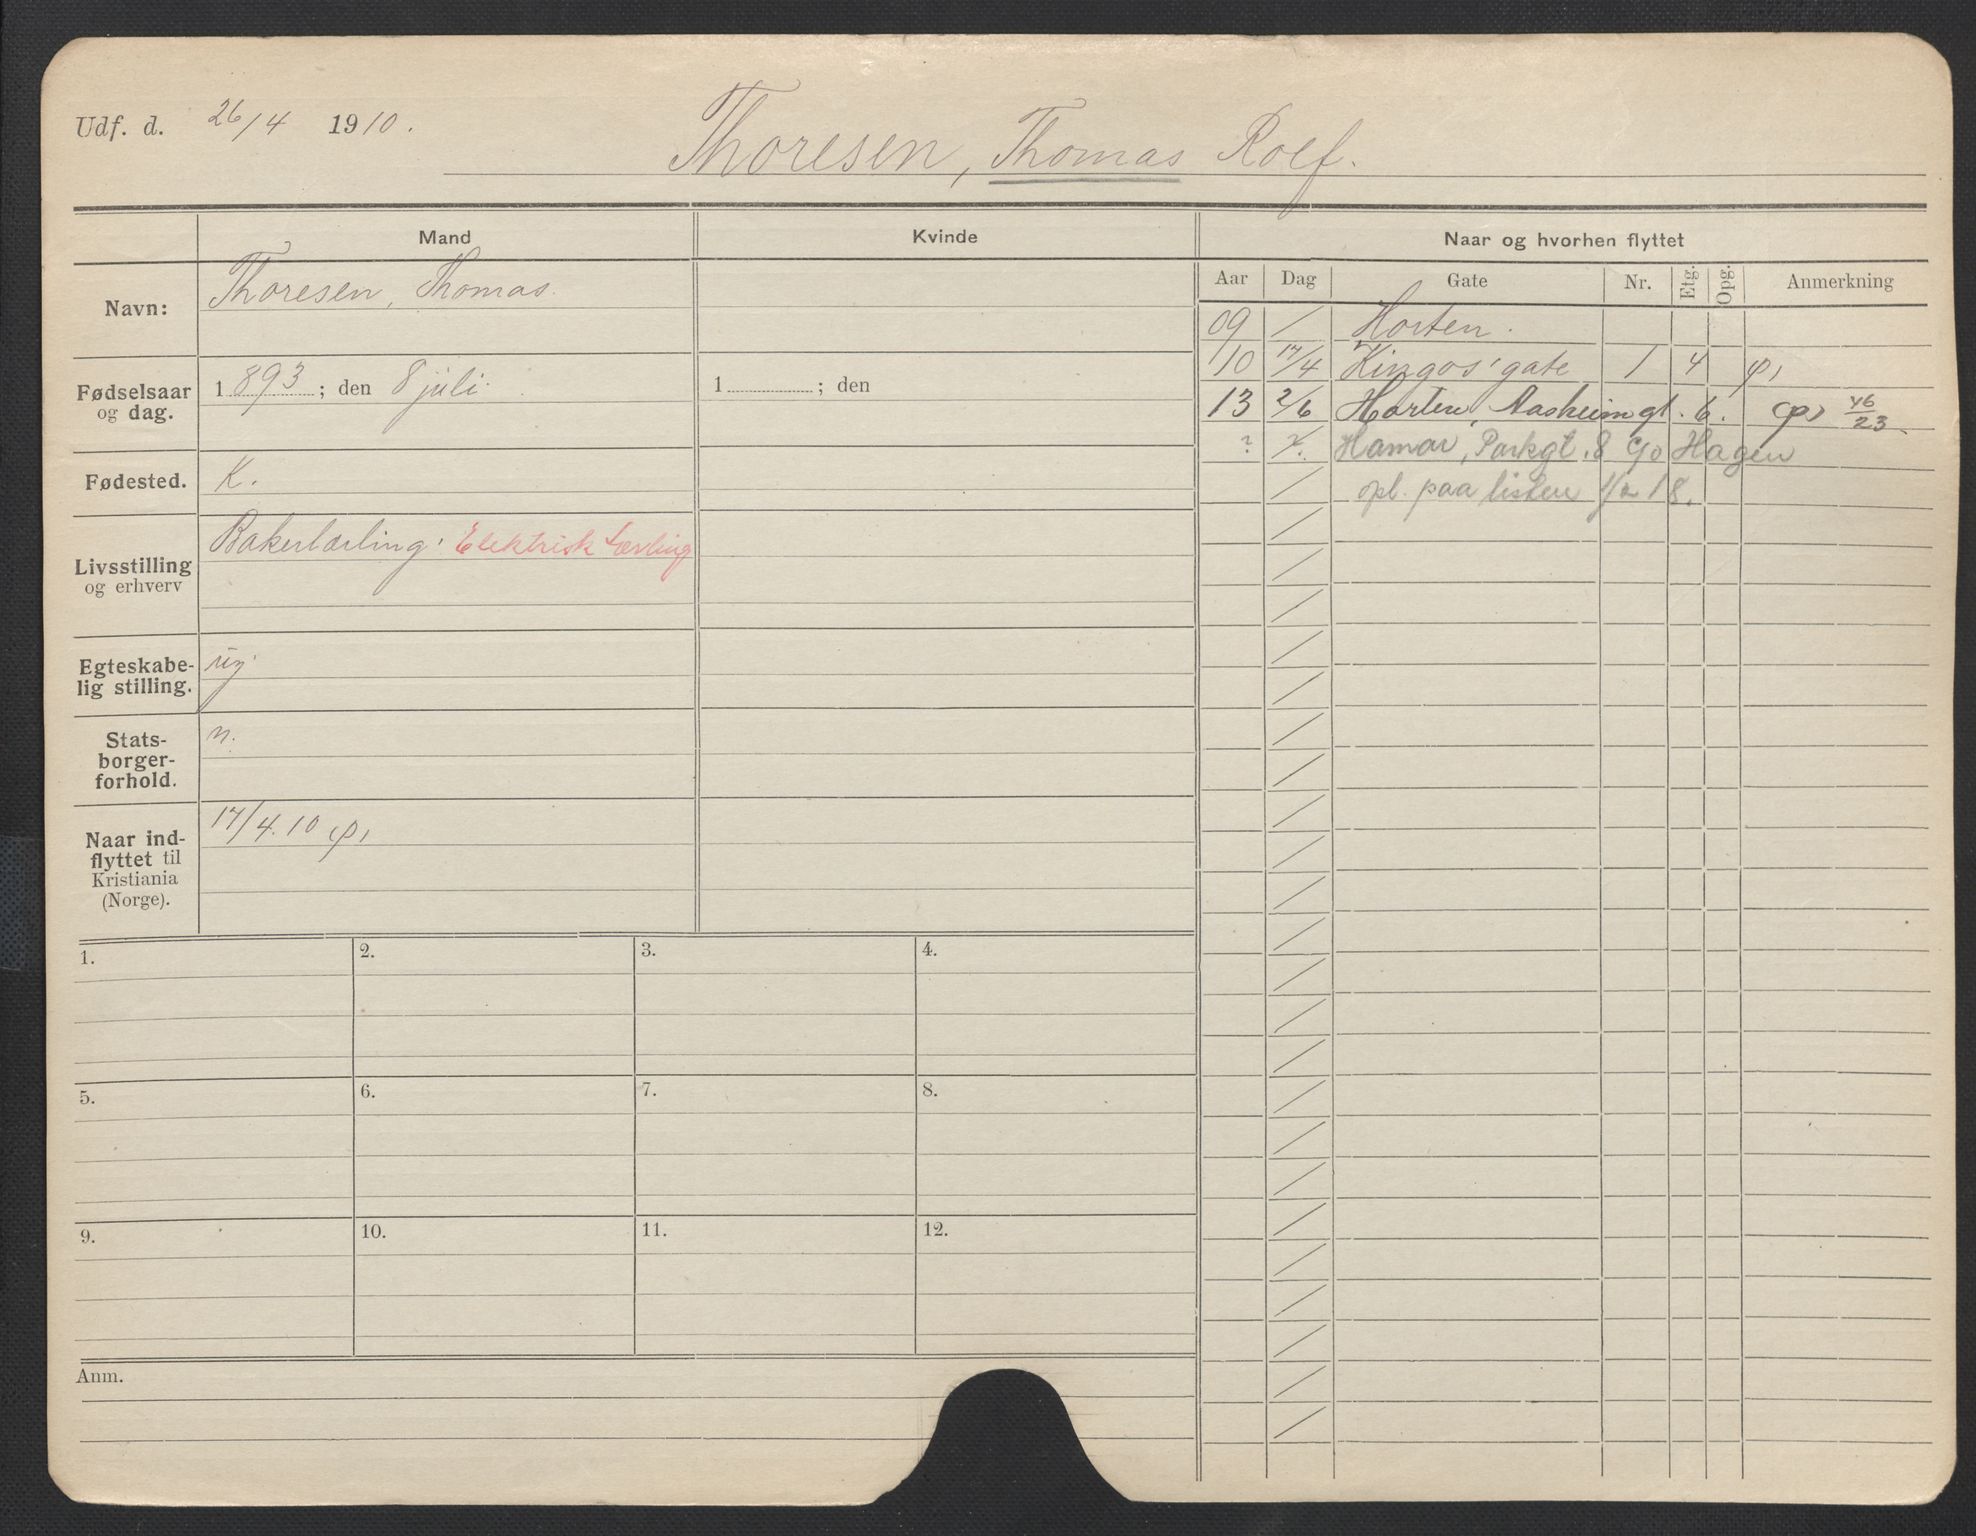 Udf. d. 26/4 1910.
Thoresen, Thomas Rolf.
Mand
Kvinde
Naar og hvorhen flyttet
Aar Dag Gate Nr. Etg. Opg. Anmerkning
Navn: Thoresen, Thomas.
Fødselsaar og dag. 1893; den 8 juli. 1 ; den
Fødested. K.
Livsstilling og erhverv Bakerlærling. Elektrisk Lærling
Egteskabe-
lig stilling. ug.
Stats-
borger-
forhold. n.
Naar ind-
flyttet til
Kristiania
(Norge). 17/4.10 (p)
09 / Horten.
10 17/4 Kingos' gate 1 4 (p)
13 2/6 Horten, Aasheimgt. 6. (p) 46/23
? ?/. Hamar, Parkgt. 8 c/o Hagen
/ opl. paa listen 1/2 18.
1. 2. 3. 4.
5. 6. 7. 8.
9. 10. 11. 12.
Anm.